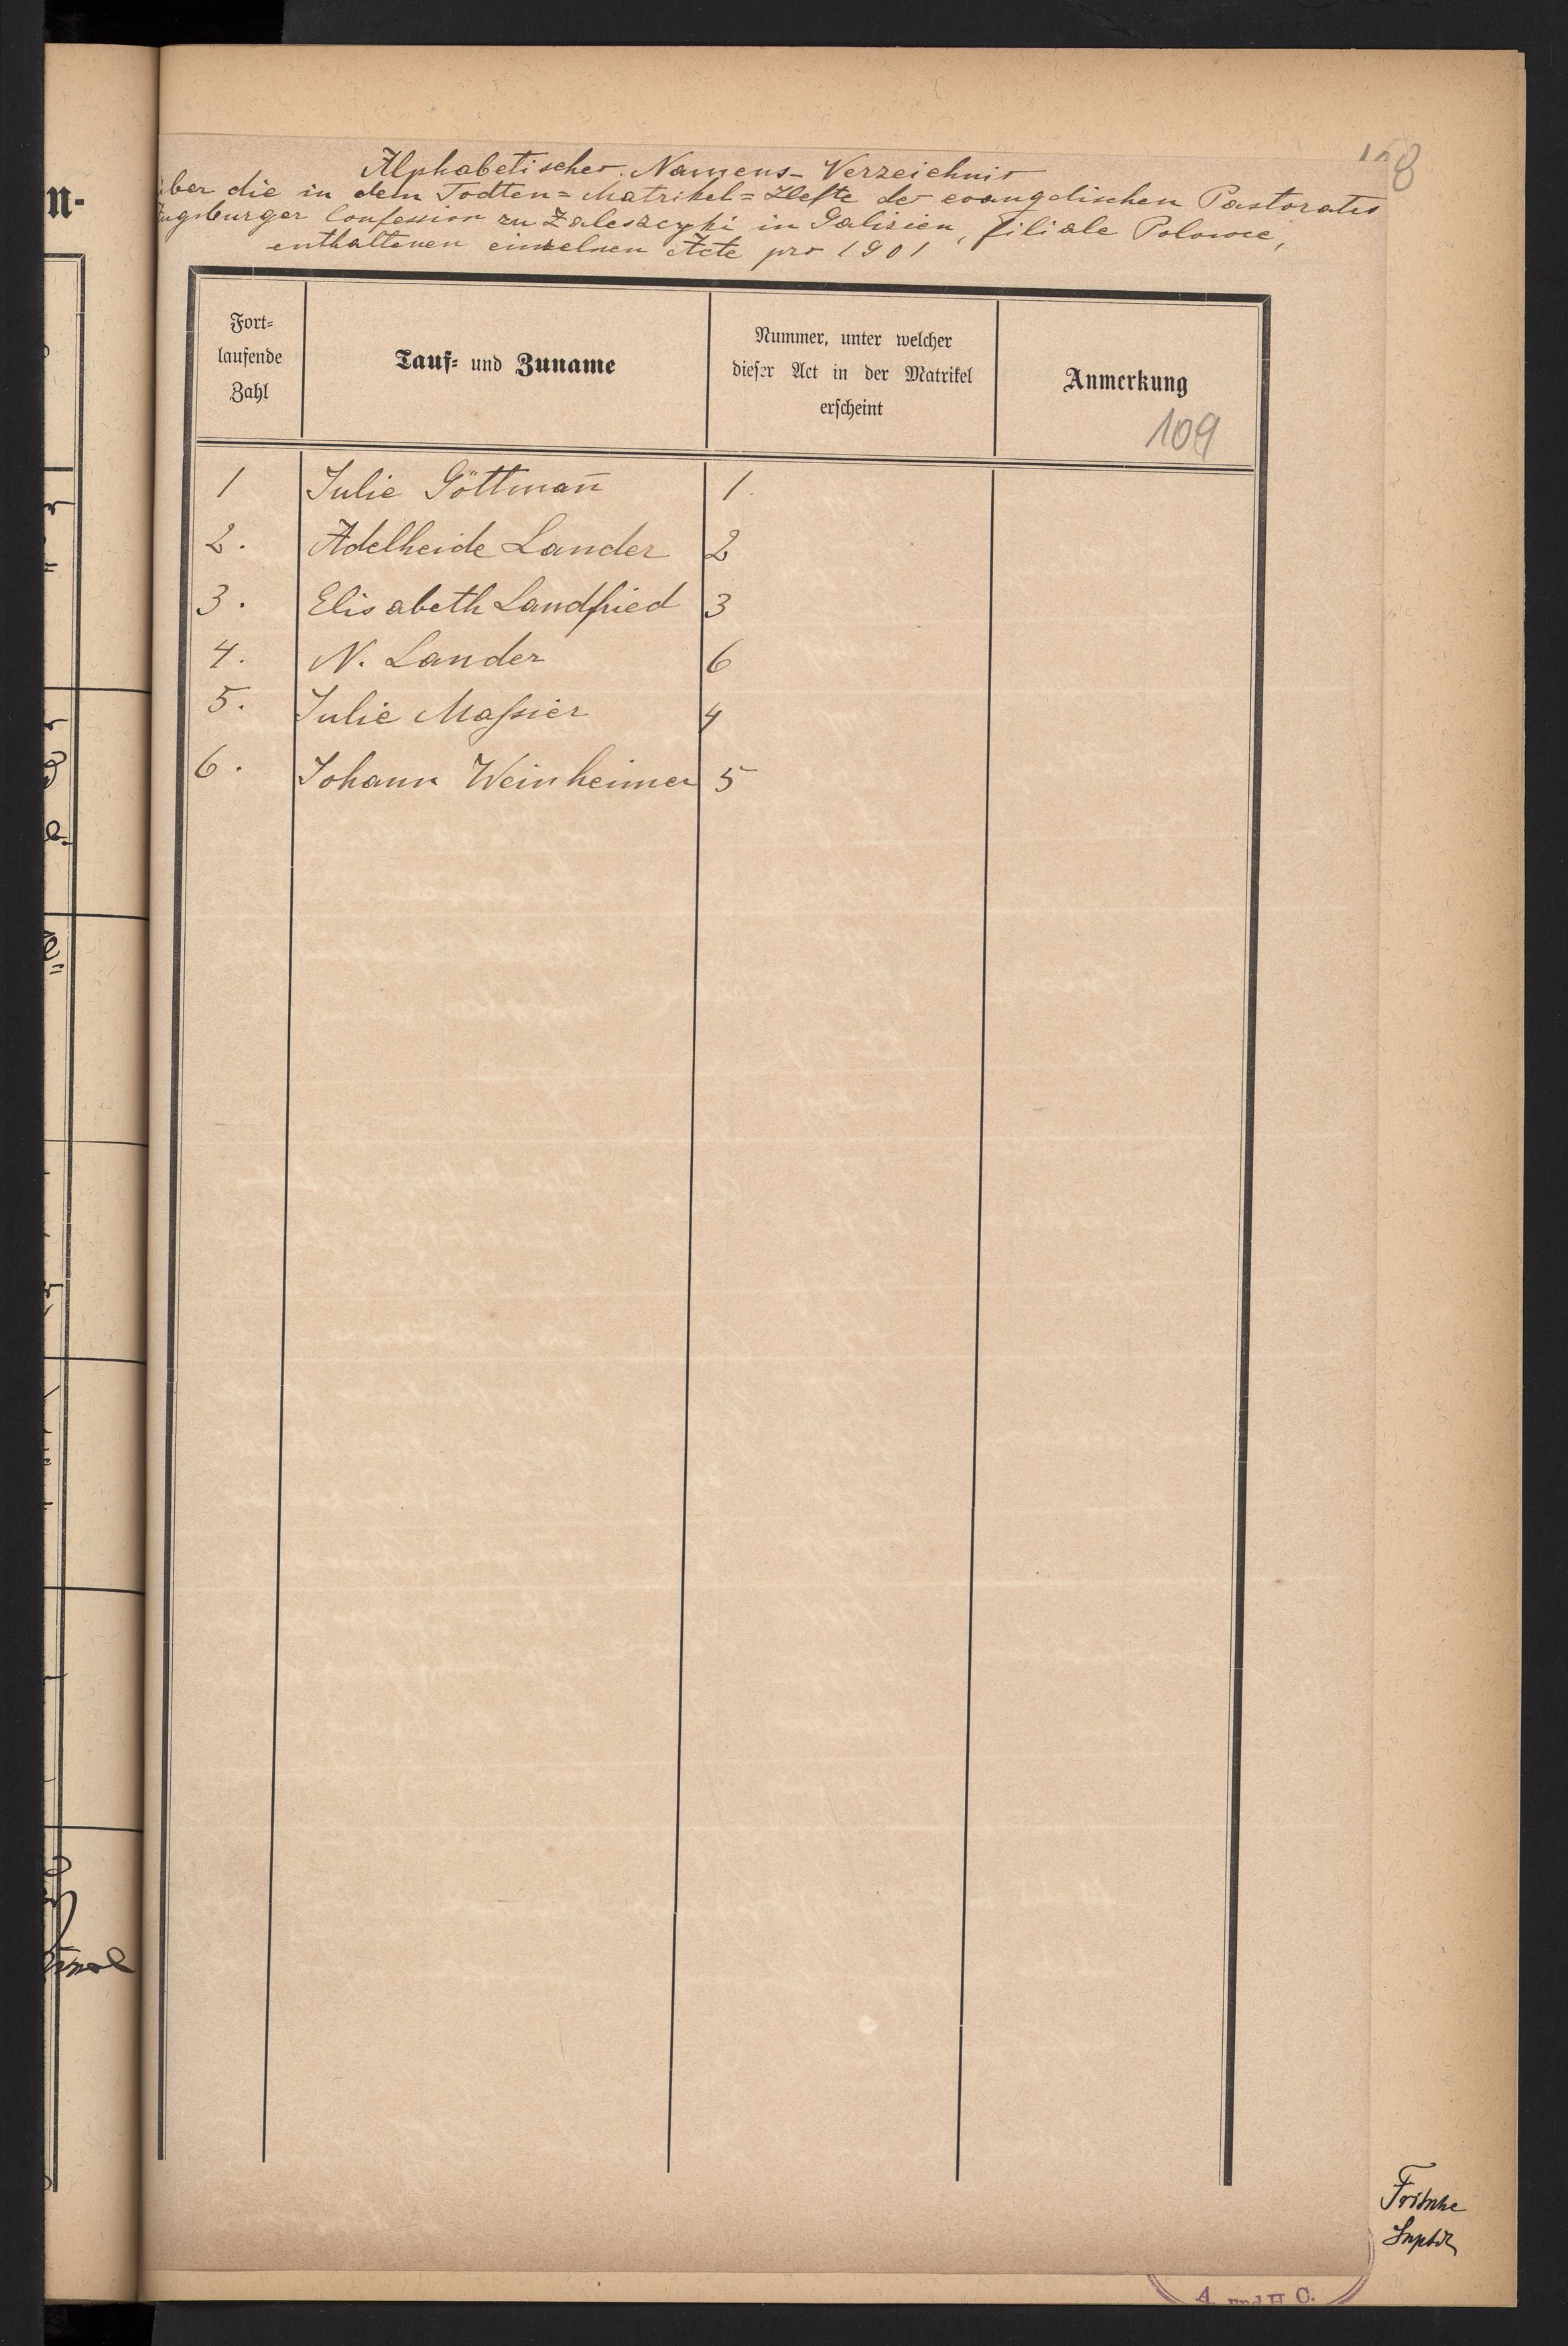 Alphabetisches Namens-Verzeichnis
über die in dem Todten=Matrikel=Hefte des evangelischen Pastorates
Augsburger Confession zu Zaleszczyki in Galizien, Filiale Polowce,
enthaltenen einzelnen Acte pro 1901
Fort=
laufende
Zahl
Tauf= und Zuname
Nummer, unter welcher
dieser Act in der Matrikel
erscheint
Anmerkung
109
1 Julie Göttman̄ 1.
2. Adelheide Lander 2
3. Elisabeth Landfried 3
4. N. Lander 6
5. Julie Maſsier 4
6. Johann Weinheimer 5
Fritsche
Suptdt
A. und H. C.